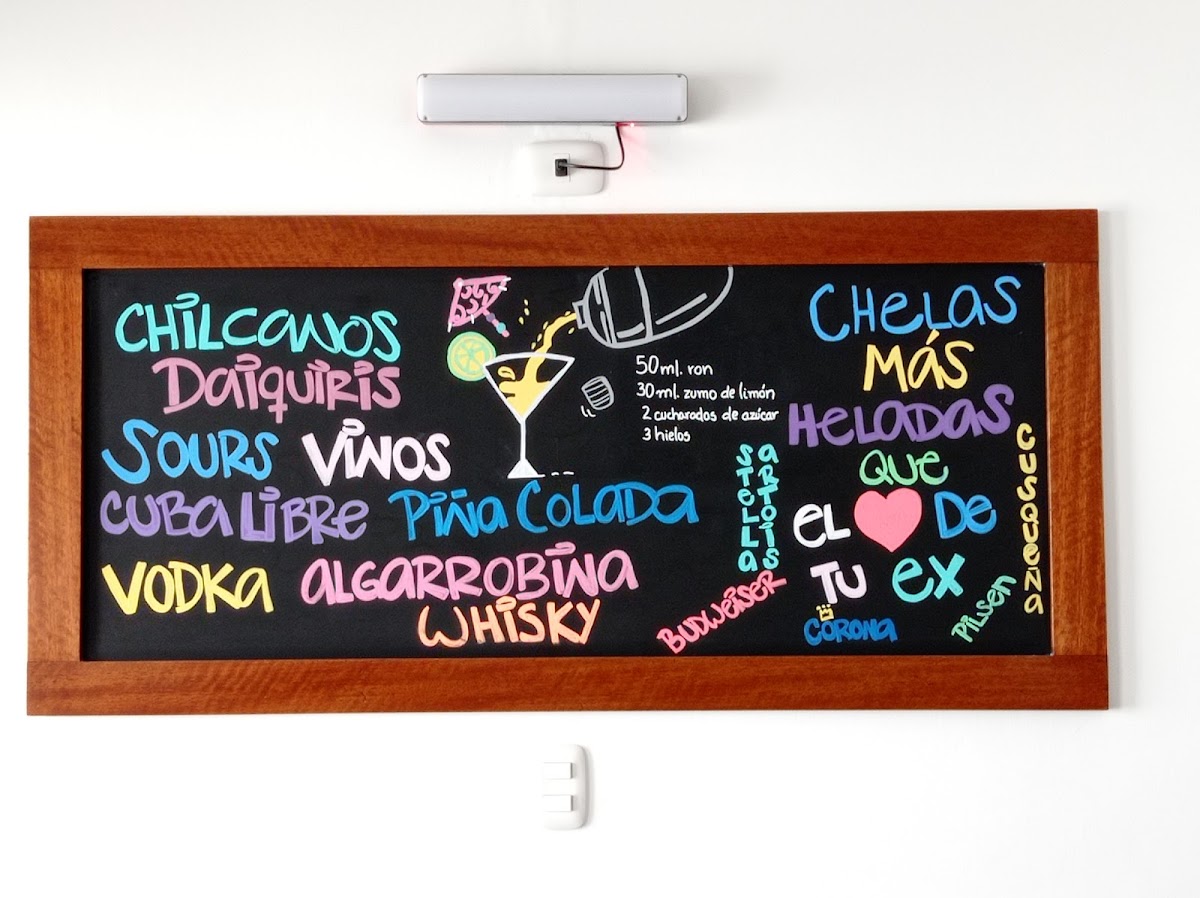 CHILCANOS
DAIQUIRIS
SOURS VINOS
CUBA LIBRE PIÑA COLADA
VODKA ALGARROBINA
WHISKY
50 ml. ron
30 ml. zumo de limón
2 cucharadas de azúcar
3 hielos
CHELAS
MÁS
HELADAS
QUE
EL DE
TU EX
STELLA
ARTOIS
BUDWEISER
CORONA
PILSEN
CUSQUEÑA